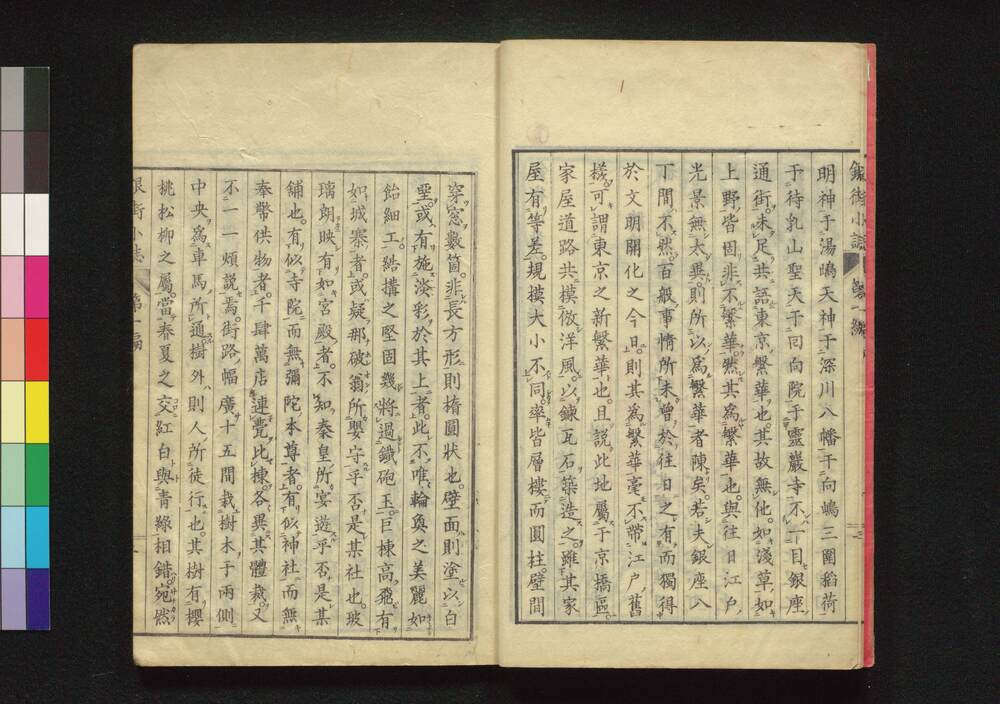 銀街小誌 第一編
明神于湯嶋天神于深川八幡于向嶋三圍稻荷
于待乳山聖天于回向院于靈巖寺不一目銀座
通街未足共語東京繁華也其故無他如淺草如
上野皆固非不繁華然其爲繁華也與往日江戸
光景無太異則所以爲繁華者陳矣若夫銀座八
丁間不然百般事情所未曾於往日之有而獨得
於文明開化之今日則其爲繁華毫不帶江戸舊
樣可謂東京之新繁華也且説此地屬于京橋區
家屋道路共摸倣洋風以鍊瓦石築造之雖其家
屋有等差規摸大小不同率皆層樓而圓柱壁間
穿窓數箇非長方形則楕圓狀也壁面則塗以白
堊或有施淡彩於其上者此不唯輪奐之美麗如
飴細工結搆之堅固幾將過鐵砲玉巨棟高飛有
如城寨者或疑那破翁所嬰守乎否是某社也玻
璃朗映有如宮殿者不知秦皇所宴遊乎否是某
舖也有似寺院而無彌陀本尊者有似神社而無
奉幣供物者千肆萬店連甍比棟各異其體裁又
不一一煩説焉街路幅廣十五間栽樹木于兩側
中央爲車馬所通樹外則人所徒行也其樹有櫻
桃松柳之屬當春夏之交紅白與青綠相錯宛然
銀街小誌 第一編